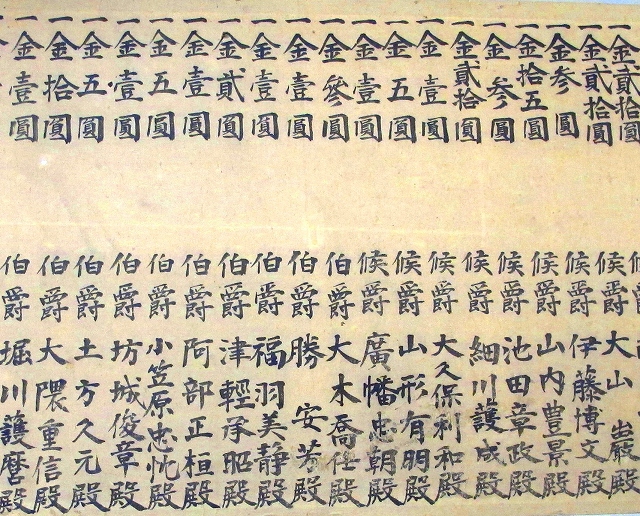 一金貳拾圓
一金貳拾圓 候爵大山巌殿
一金参圓 候爵伊藤博文殿
一金拾五圓 候爵山内豊景殿
一金参圓 候爵池田章政殿
一金貳拾圓 候爵細川護成殿
一金壹圓 候爵大久保利和殿
一金五圓 候爵山形有明殿
一金壹圓 候爵廣幡忠朝殿
一金參圓 伯爵大木喬任殿
一金壹圓 伯爵勝安芳殿
一金壹圓 伯爵福羽美静殿
一金貳圓 伯爵津輕承昭殿
一金壹圓 伯爵阿部正桓殿
一金五圓 伯爵小笠原忠忱殿
一金壹圓 伯爵坊城俊章殿
一金五圓 伯爵土方久元殿
一金拾圓 伯爵大隈重信殿
一金壹圓 伯爵堀川護麿殿